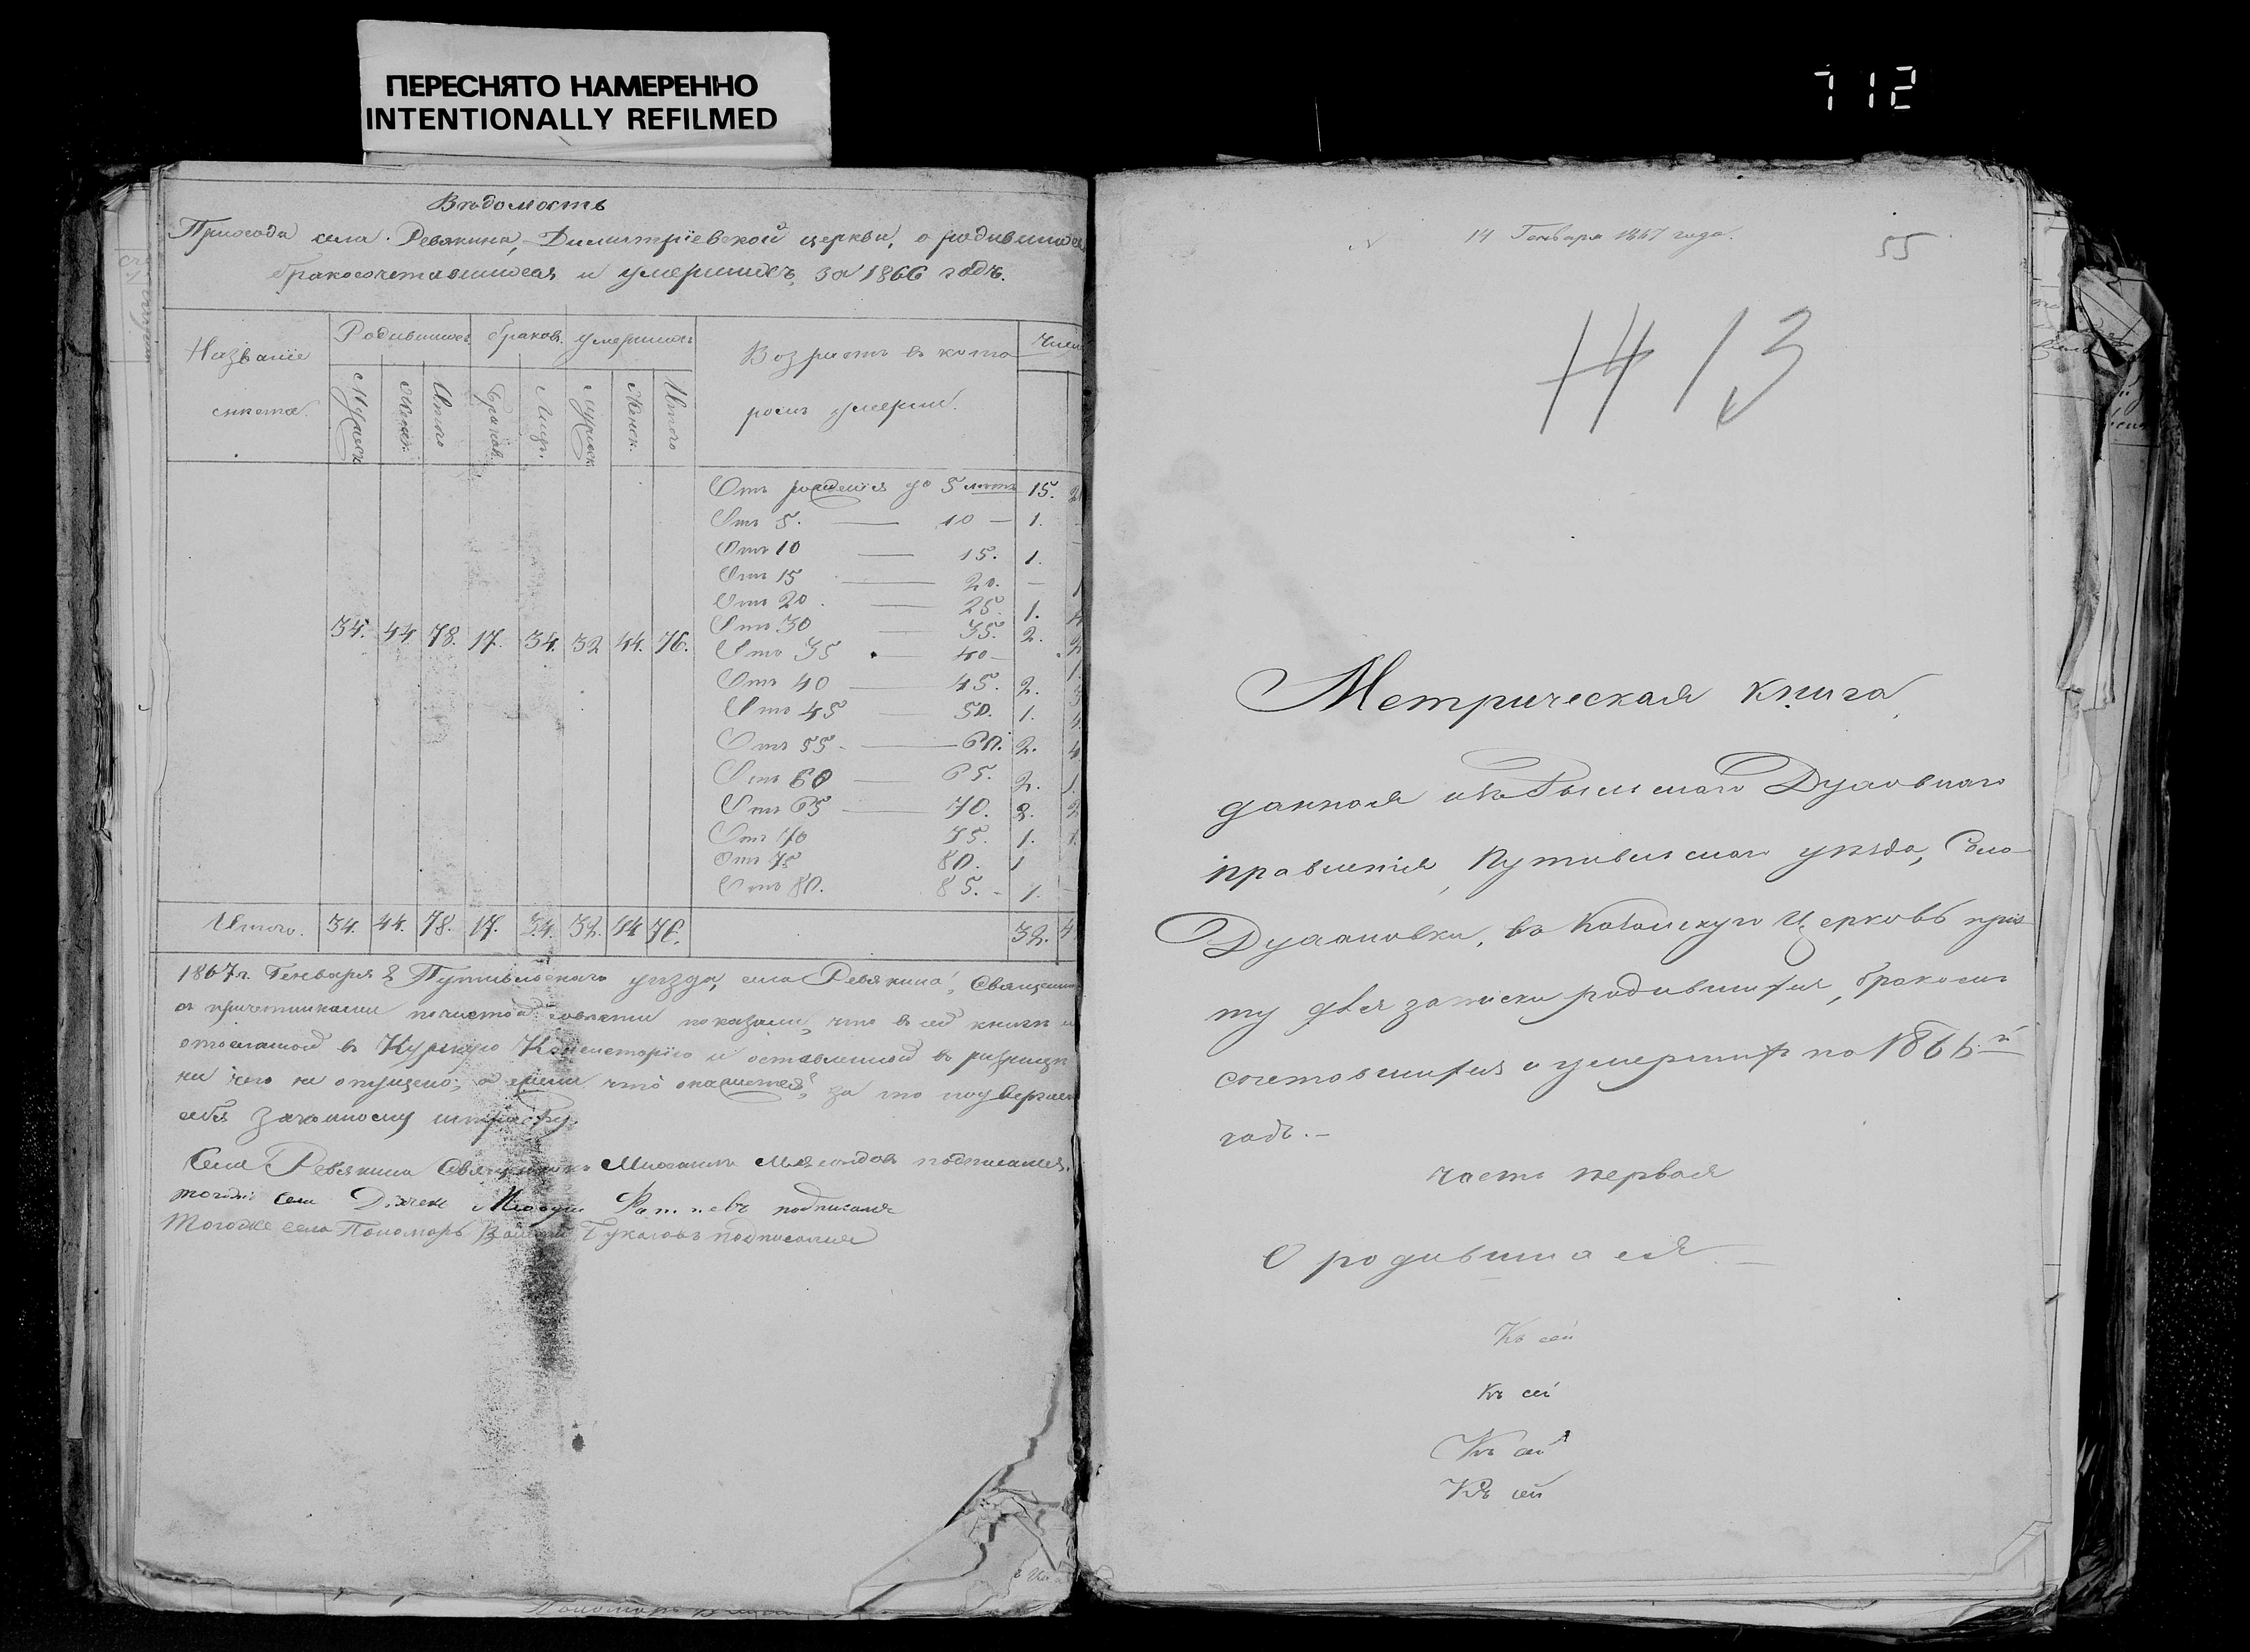 ПЕРЕСНЯТО НАМЕРЕННО
INTENTIONALLY REFILMED
712
Вѣдомость
Прихода села Ревякина, Димитріевской церкви, о родившихся
бракосочетавшихся и умершихъ за 1866 годъ.
Названіе мѣста.
Родившихся браков. умершихъ
Возрастъ в кото
ромъ умерли.
Число
Мужеск. Женск. Итого Браков. Лицъ. Мужеск. Женск. Итого
Отъ рожденія до 5 лѣтъ 15.
Отъ 5. — 10 — 1.
Отъ 10 — 15. 1.
Отъ 15 — 20. —
Отъ 20. — 25. 1.
Отъ 30 — 35. 2.
34. 44 78. 17. 34. 32 44. 76.
Отъ 35 — 40 —
Отъ 40 — 45. 2.
Отъ 45 — 50. 1.
Отъ 55 — 60. 2.
Отъ 60 — 65. 2.
Отъ 65 — 70. 2.
Отъ 70 75. 1.
Отъ 75 80. 1
Отъ 80. 85. - 1.
Итого. 34. 44. 78. 17. 34. 32. 44 76. 32. 4
1867 г. Генваря Путивльскаго уѣзда, села Ревякина, Священник
съ причетниками по чистой совѣсти показали, что в сей книгѣ и
отосланной въ Курскую Консисторію и оставленной въ ризницѣ
ни чего не опущено; а ежели что окажется, за то подвергаем
себя законному штрафу.
Села Ревякина Священникъ Михаилъ подписался.
тогожъ села подписался
Тогоже села Пономарь подписался
14 Генваря 1867 года.
55
14 13
Метрическая книга,
данная изъ Рыльскаго Духовнаго
правленія, Путивльскаго уѣзда, Села
Духановки, въ Казанскую Церковь при
ту для записки родившихся, бракосо
сочетавшихся и умершихъ на 1866-й
годъ. —
часть первая
О родившихся. —
Къ сей
Къ сей
Къ сей
Къ сей